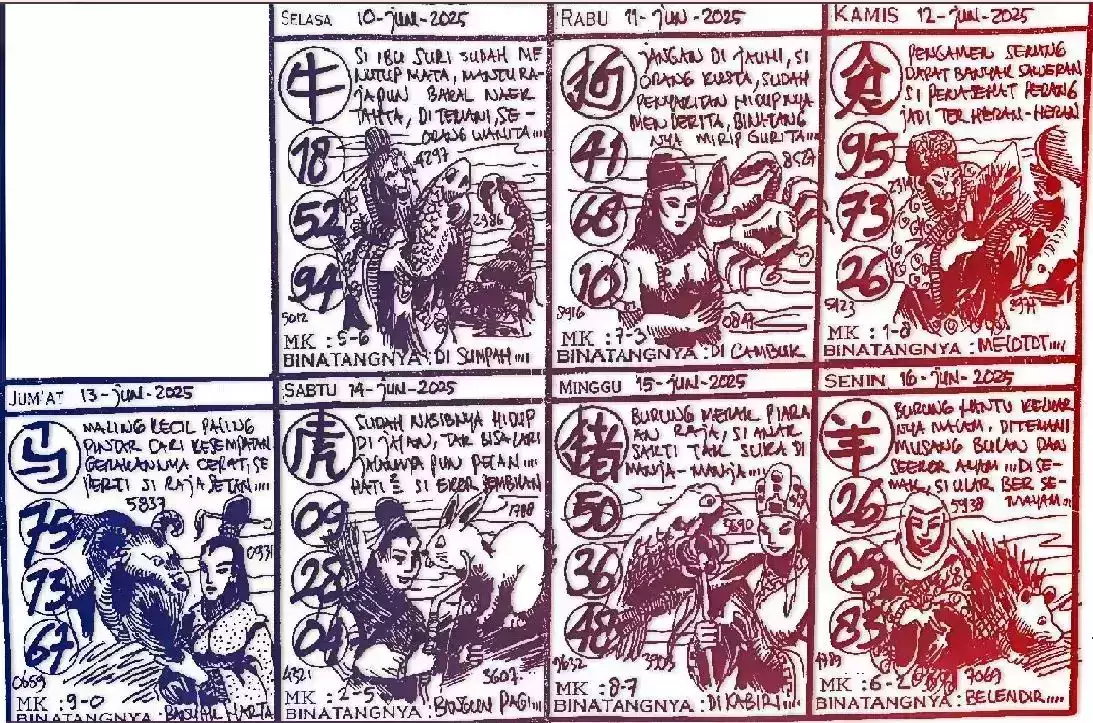 SELASA 10-JUN-2025
牛
SI IBU SURI SUDAH ME
NUTUP MATA, MANTU RA-
JAPUN BAKAL NAEK
TAHTA, DITEMANI, SE-
ORANG WANITA....
18
4297
52
2986
94
5012
MK : 5-6
BINATANGNYA : DI SUMPAH....
RABU 11-JUN-2025
狗
JANGAN DI JAUHI, SI
ORANG KUSTA, SUDAH
PENYAKITAN HIDUPNYA
MENDERITA, BINATANG
NYA MIRIP GURITA....
41
8527
68
10
8916
0847
MK : 7-3
BINATANGNYA : DI CAMBUK
KAMIS 12-JUN-2025
PENGAMEN SENANG
DAPAT BANYAK SAWERAN
SI PENASEHAT PERANG
JADI TER HERAN-HERAN
95
73
26
5923
MK : 1-8
BINATANGNYA : MELOTOT....
JUM'AT 13-JUN-2025
马
MALING KECIL PALING
PINTAR CARI KESEMPATAN
GERAKANNYA CEPAT, SE
PERTI SI RAJA SETAN....
5837
75
0931
73
67
MK : 9-0
BINATANGNYA : HARTA
SABTU 14-JUN-2025
虎
SUDAH NASIBNYA HIDUP
DI JALAN, TAK BISA LARI
JALANNYA PUN PELAN....
HATI 2 SI EKOR
09
28
04
4321
3607
MK : 2-5
BINATANGNYA : BANGUN PAGI....
MINGGU 15-JUN-2025
猪
BURUNG MERAK PIARA
AN RAJA, SI ANAK
SAKTI TAK SUKA DI
MANJA-MANJA....
50
36
48
MK : 8-7
BINATANGNYA : DI KABIRI....
SENIN 16-JUN-2025
羊
BURUNG HANTU KELUAR
NYA MALAM, DITEMANI
MUSANG BULAN DAN
SEEKOR AYAM.... DI SE-
MAK, SI ULAR BER SE-
MAYAM....
26
5938
05
83
7069
MK : 6-2
BINATANGNYA : BELENDIR....